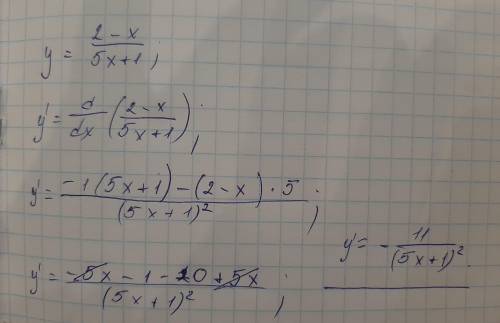 y = (2-x)/(5x+1);
y' = d/dx ((2-x)/(5x+1));
y' = (-1(5x+1)-(2-x)·5)/(5x+1)²;
y' = (-5x-1-10+5x)/(5x+1)²;
y' = -11/(5x+1)².